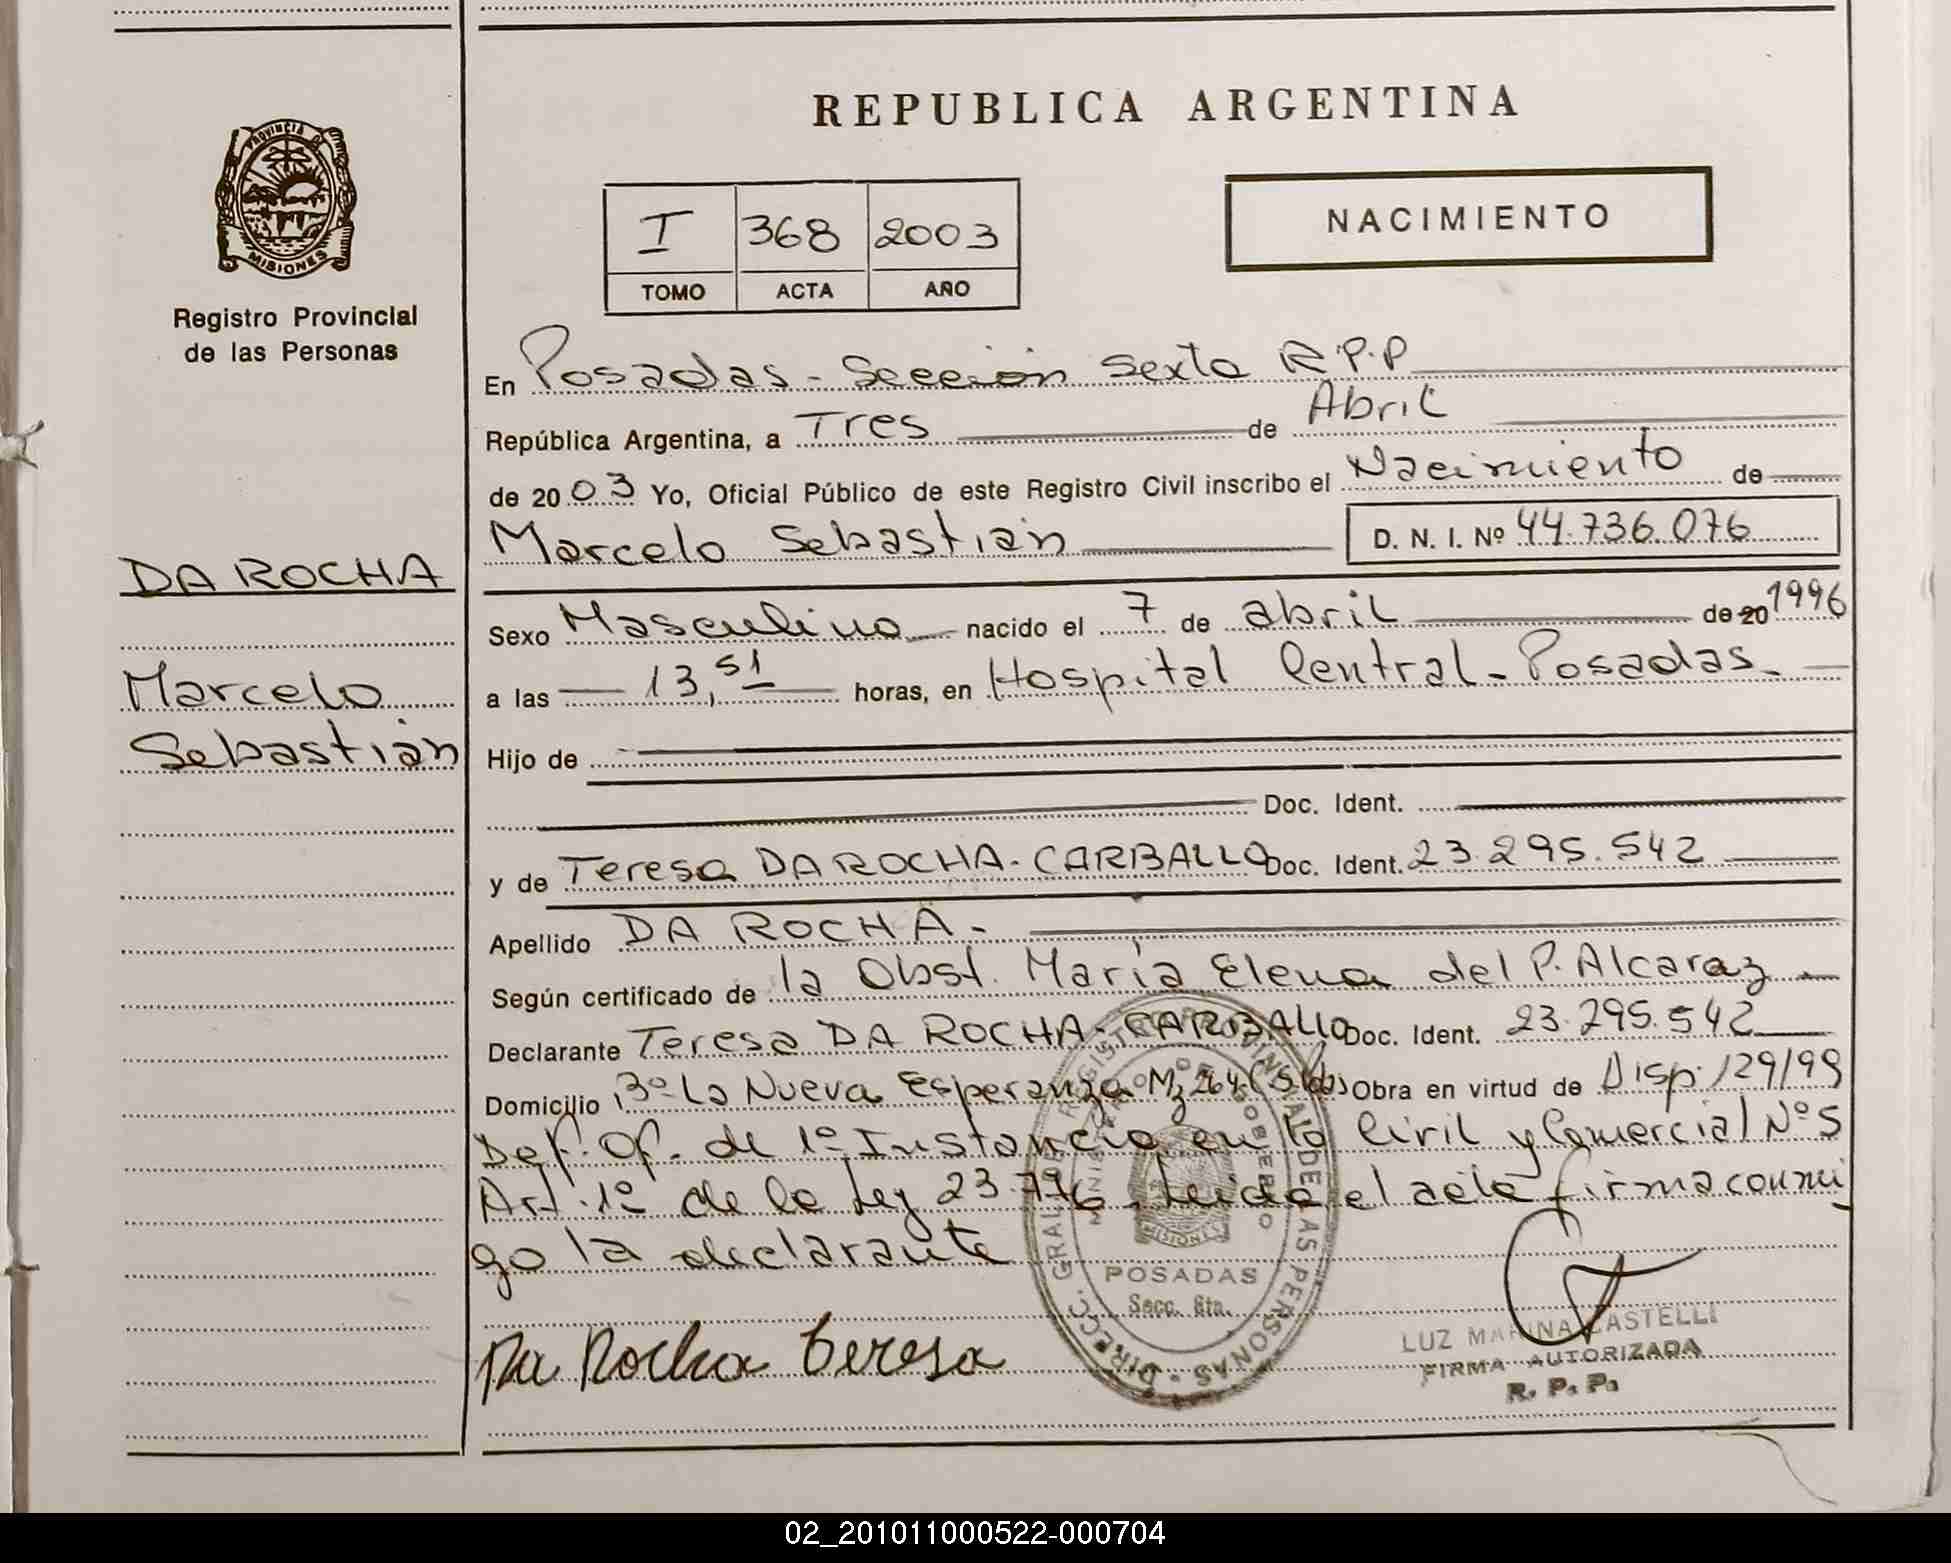 REPUBLICA ARGENTINA
PROVINCIA
MISIONES
Registro Provincial
de las Personas
I 368 2003
TOMO ACTA AÑO
NACIMIENTO
En Posadas - Sección Sexta R.P.P
República Argentina, a Tres de Abril
de 2003 Yo, Oficial Público de este Registro Civil inscribo el Nacimiento de
Marcelo Sebastián D. N. I. Nº 44.736.076
DA ROCHA
Marcelo
Sebastián
Sexo Masculino nacido el 7 de abril de 20 1996
a las 13,51 horas, en Hospital Central - Posadas -
Hijo de
Doc. Ident.
y de Teresa DA ROCHA - CARBALLO Doc. Ident. 23.295.542
Apellido DA ROCHA -
Según certificado de la Obst. María Elena del P. Alcaraz
Declarante Teresa DA ROCHA - CARBALLO Doc. Ident. 23.295.542
Domicilio Bº La Nueva Esperanza Mz 264 Obra en virtud de Disp. 129/99
Def. Of. de 1º Instancia en lo Civil y Comercial Nº 5
Art. 1º de la Ley 23.776. Leida el acta firma conmi
go la declarante
Da Rocha Teresa
DIRECC. GRAL. DE REGISTRO PROVINCIAL DE LAS PERSONAS
MINISTERIO DE GOBIERNO
MISIONES
POSADAS
Secc. 6ta.
LUZ MARINA CASTELLI
FIRMA AUTORIZADA
R. P. P.
02_201011000522-000704